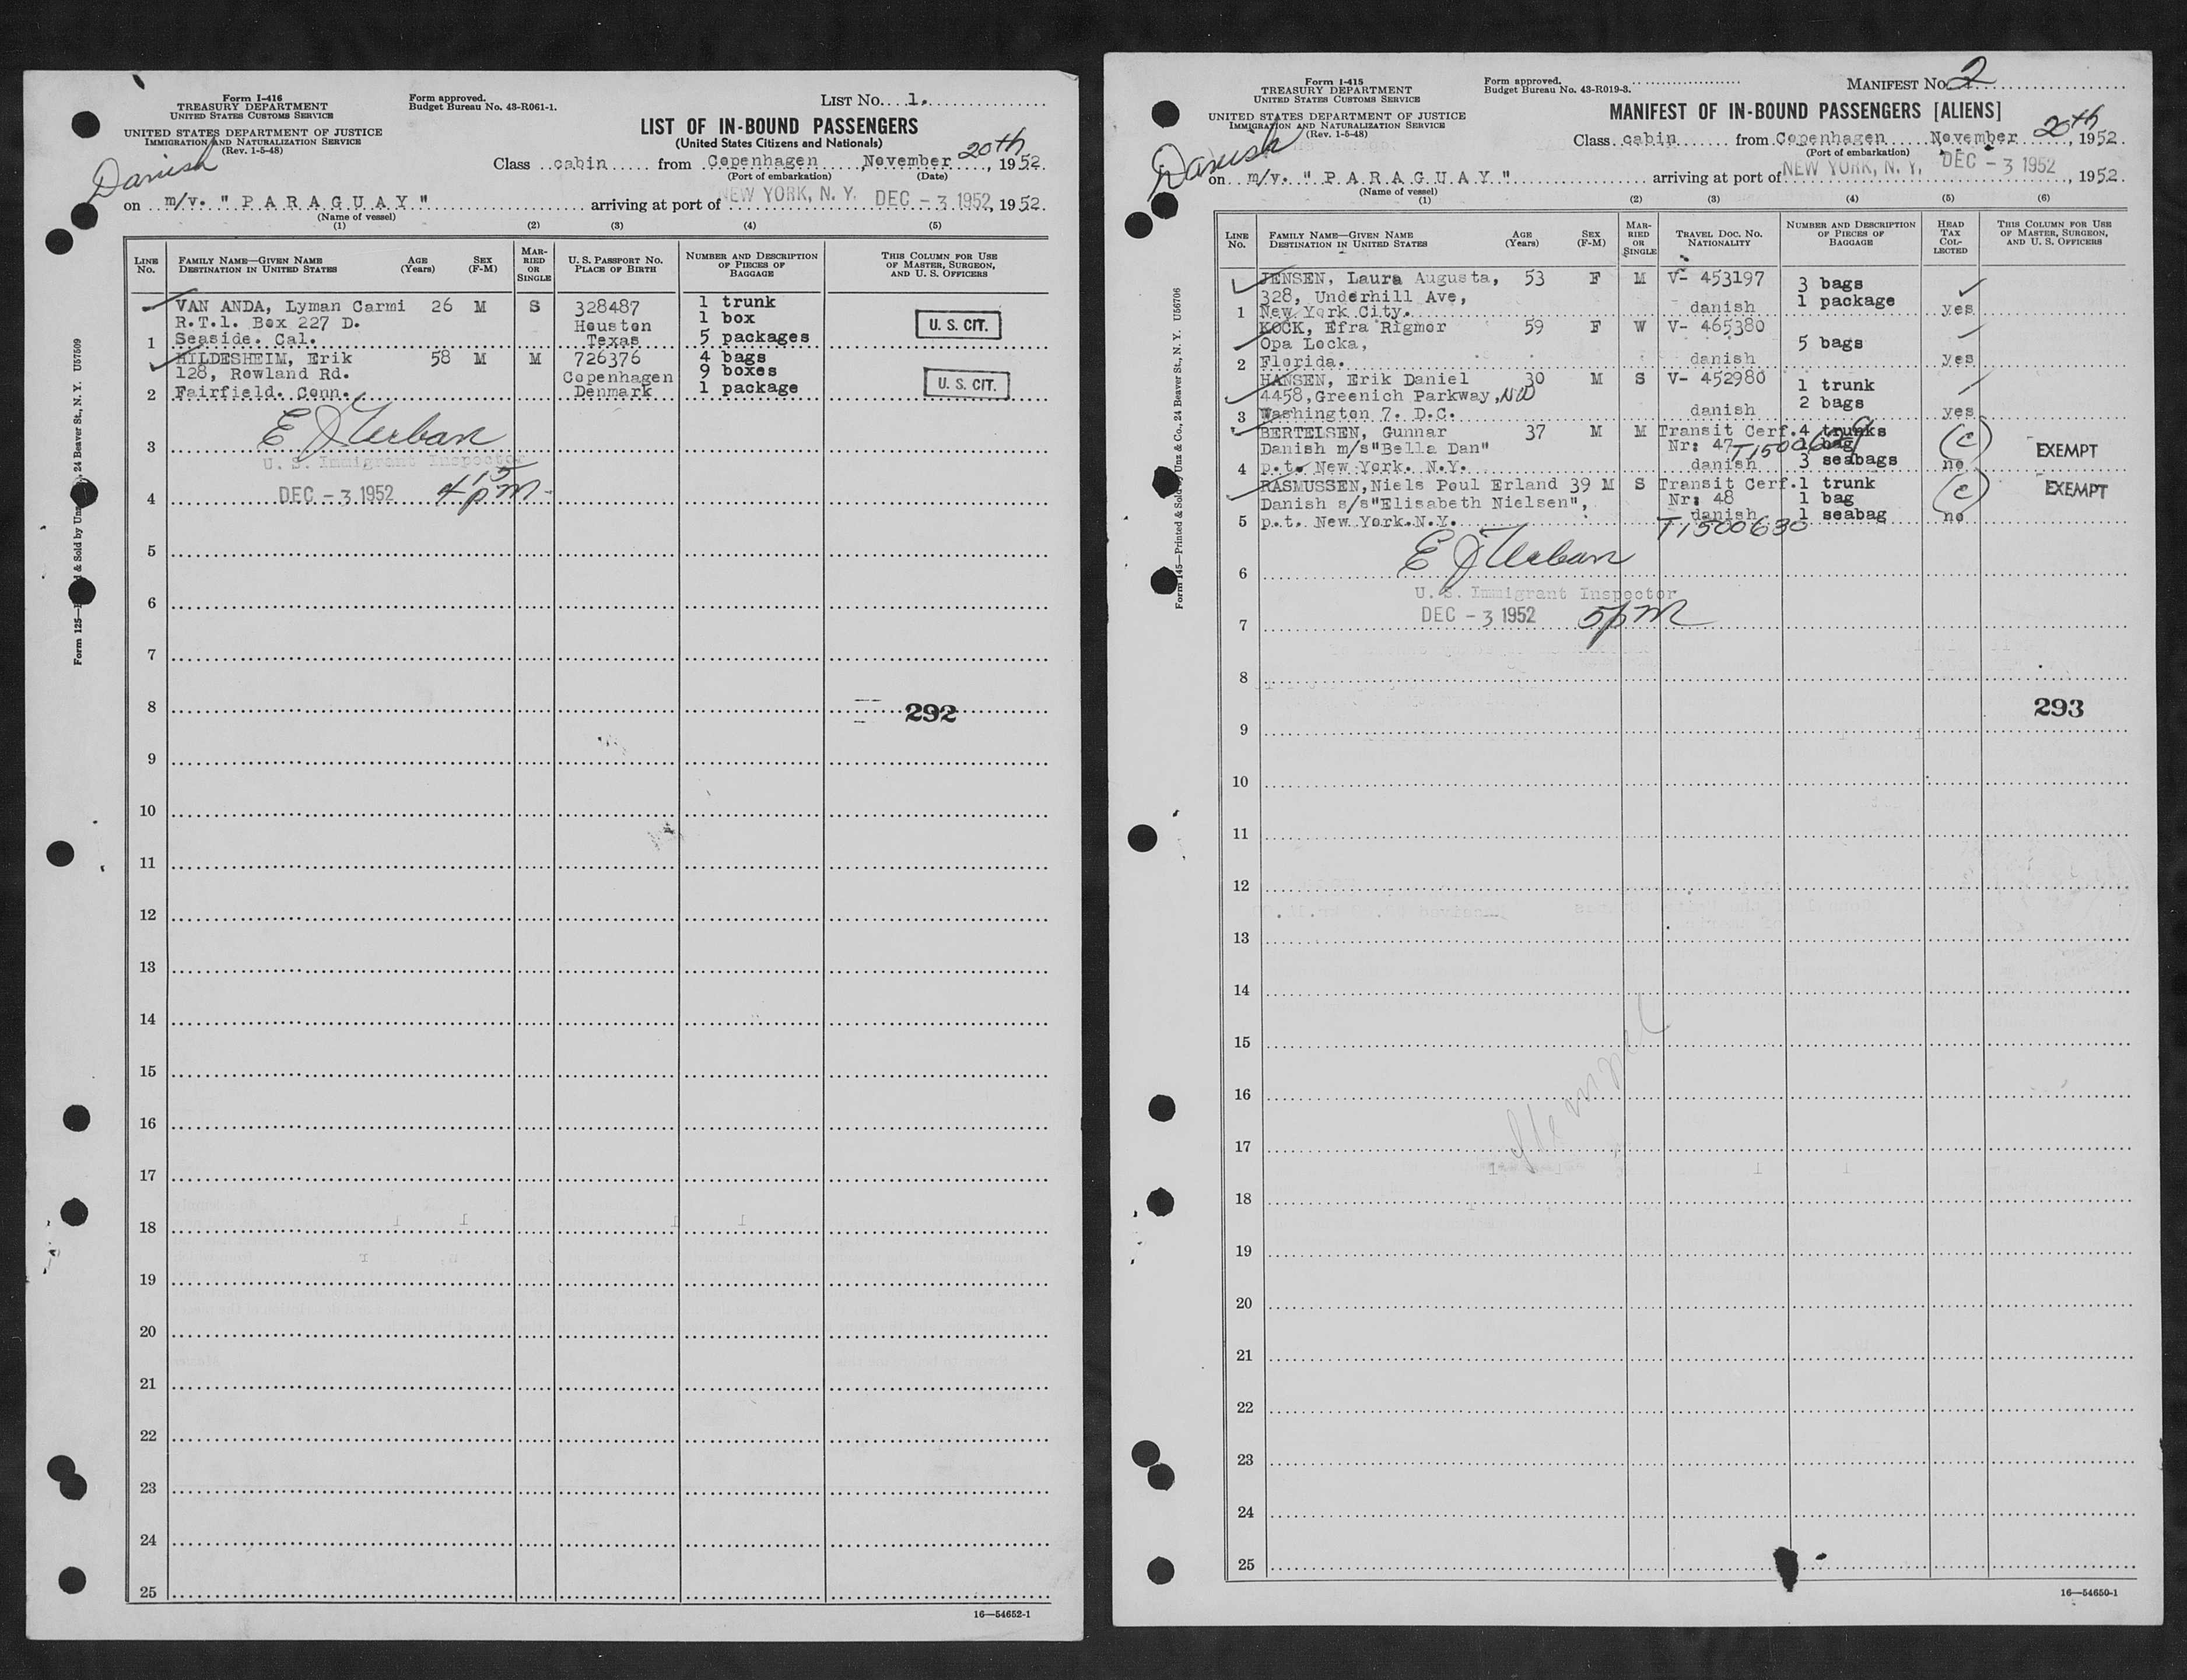 Form I-416
TREASURY DEPARTMENT
UNITED STATES CUSTOMS SERVICE
UNITED STATES DEPARTMENT OF JUSTICE
IMMIGRATION AND NATURALIZATION SERVICE
(Rev. 1-5-48)
Form approved.
Budget Bureau No. 43-R061-1.
LIST No. 1.
LIST OF IN-BOUND PASSENGERS
(United States Citizens and Nationals)
Danish
Class cabin from Copenhagen, November 20th, 1952.
(Port of embarkation) (Date)
on m/v. " P A R A G U A Y " arriving at port of NEW YORK, N. Y. DEC - 3 1952, 1952.
(Name of vessel)
(1) (2) (3) (4) (5)
LINE No. FAMILY NAME—GIVEN NAME DESTINATION IN UNITED STATES AGE (Years) SEX (F-M) MARRIED OR SINGLE U. S. PASSPORT NO. PLACE OF BIRTH NUMBER AND DESCRIPTION OF PIECES OF BAGGAGE THIS COLUMN FOR USE OF MASTER, SURGEON, AND U. S. OFFICERS
VAN ANDA, Lyman Carmi 26 M S 328487 1 trunk
R.T.1. Box 227 D. Houston 1 box U. S. CIT.
1 Seaside. Cal. Texas 5 packages
HILDESHEIM, Erik 58 M M 726376 4 bags
128, Rowland Rd. Copenhagen 9 boxes U. S. CIT.
2 Fairfield. Conn. Denmark 1 package
E J Urban
3
U. S. Immigrant Inspector
DEC - 3 1952 4 15 pm
4
5
6
7
8 292
9
10
11
12
13
14
15
16
17
18
19
20
21
22
23
24
25
16—54652-1
24 Beaver St., N. Y. U57509
Form I-415
TREASURY DEPARTMENT
UNITED STATES CUSTOMS SERVICE
UNITED STATES DEPARTMENT OF JUSTICE
IMMIGRATION AND NATURALIZATION SERVICE
(Rev. 1-5-48)
Form approved.
Budget Bureau No. 43-R019-3.
MANIFEST No. 2
MANIFEST OF IN-BOUND PASSENGERS [ALIENS]
Danish
Class cabin from Copenhagen November 20th, 1952.
(Port of embarkation)
on m/v. " P A R A G U A Y " arriving at port of NEW YORK, N. Y. DEC - 3 1952, 1952.
(Name of vessel)
(1) (2) (3) (4) (5) (6)
LINE No. FAMILY NAME—GIVEN NAME DESTINATION IN UNITED STATES AGE (Years) SEX (F-M) MARRIED OR SINGLE TRAVEL DOC. NO. NATIONALITY NUMBER AND DESCRIPTION OF PIECES OF BAGGAGE HEAD TAX COLLECTED THIS COLUMN FOR USE OF MASTER, SURGEON, AND U. S. OFFICERS
JENSEN, Laura Augusta, 53 F M V- 453197 3 bags
328, Underhill Ave, 1 package
1 New York City. danish yes
KOCK, Efra Rigmor 59 F W V- 465380
Opa Locka, 5 bags
2 Florida. danish yes
HANSEN, Erik Daniel 30 M S V- 452980 1 trunk
4458, Greenich Parkway, NW 2 bags
3 Washington 7. D.C. danish yes
BERTELSEN, Gunnar 37 M M Transit Cerf. 4 trunks (c)
Danish m/s"Bella Dan" Nr: 47 1 bag EXEMPT
4 p.t. New York. N.Y. danish 3 seabags no
RASMUSSEN, Niels Poul Erland 39 M S Transit Cerf. 1 trunk (c) EXEMPT
Danish s/s"Elisabeth Nielsen", Nr: 48 1 bag
5 p.t. New York.N.Y. danish 1 seabag no
T1500630
E J Urban
6
U. S. Immigrant Inspector
DEC - 3 1952 5pm
7
8
293
9
10
11
12
13
14
15
16
17
18
19
20
21
22
23
24
25
16—54650-1
Form 145—Printed & Sold by Unz & Co., 24 Beaver St., N. Y. U56706